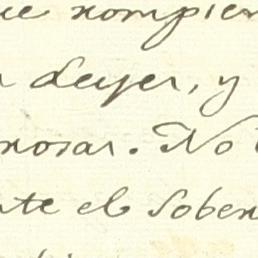 ue rompier
Leyer, y
nosar. No
nte el Sober